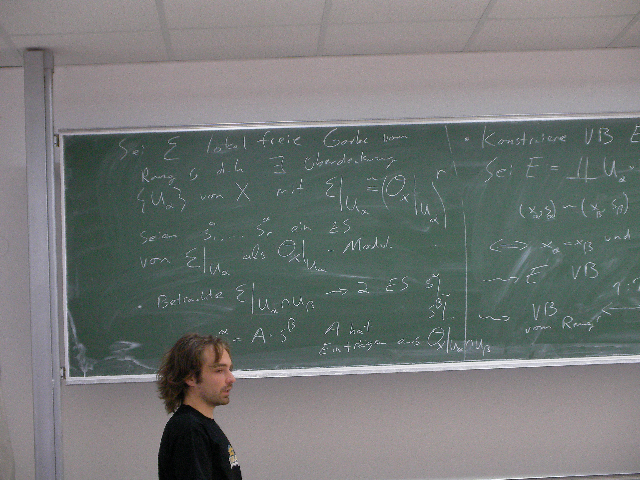 Sei ℰ lokal freie Garbe vom
Rang r, d.h. ∃ Überdeckung
{U_α} von X mit ℰ|_{U_α} ≅ (O_X|_{U_α})^r
Seien s_1^α ... s_r^α ein ES
von ℰ|_{U_α} als O_X|_{U_α} - Modul.
• Betrachte ℰ|_{U_α∩U_β} → 2 ES s_i^α
s_i^β
s^α = A · s^β A hat
Einträgen aus O_X|_{U_α∩U_β}
• Konstruiere VB E
Sei E = ∐ U_α ×
(x_α, ) ~ (x_β, )
⟺ x_α = x_β und
⇝ E VB
⇝ VB
vom Rang